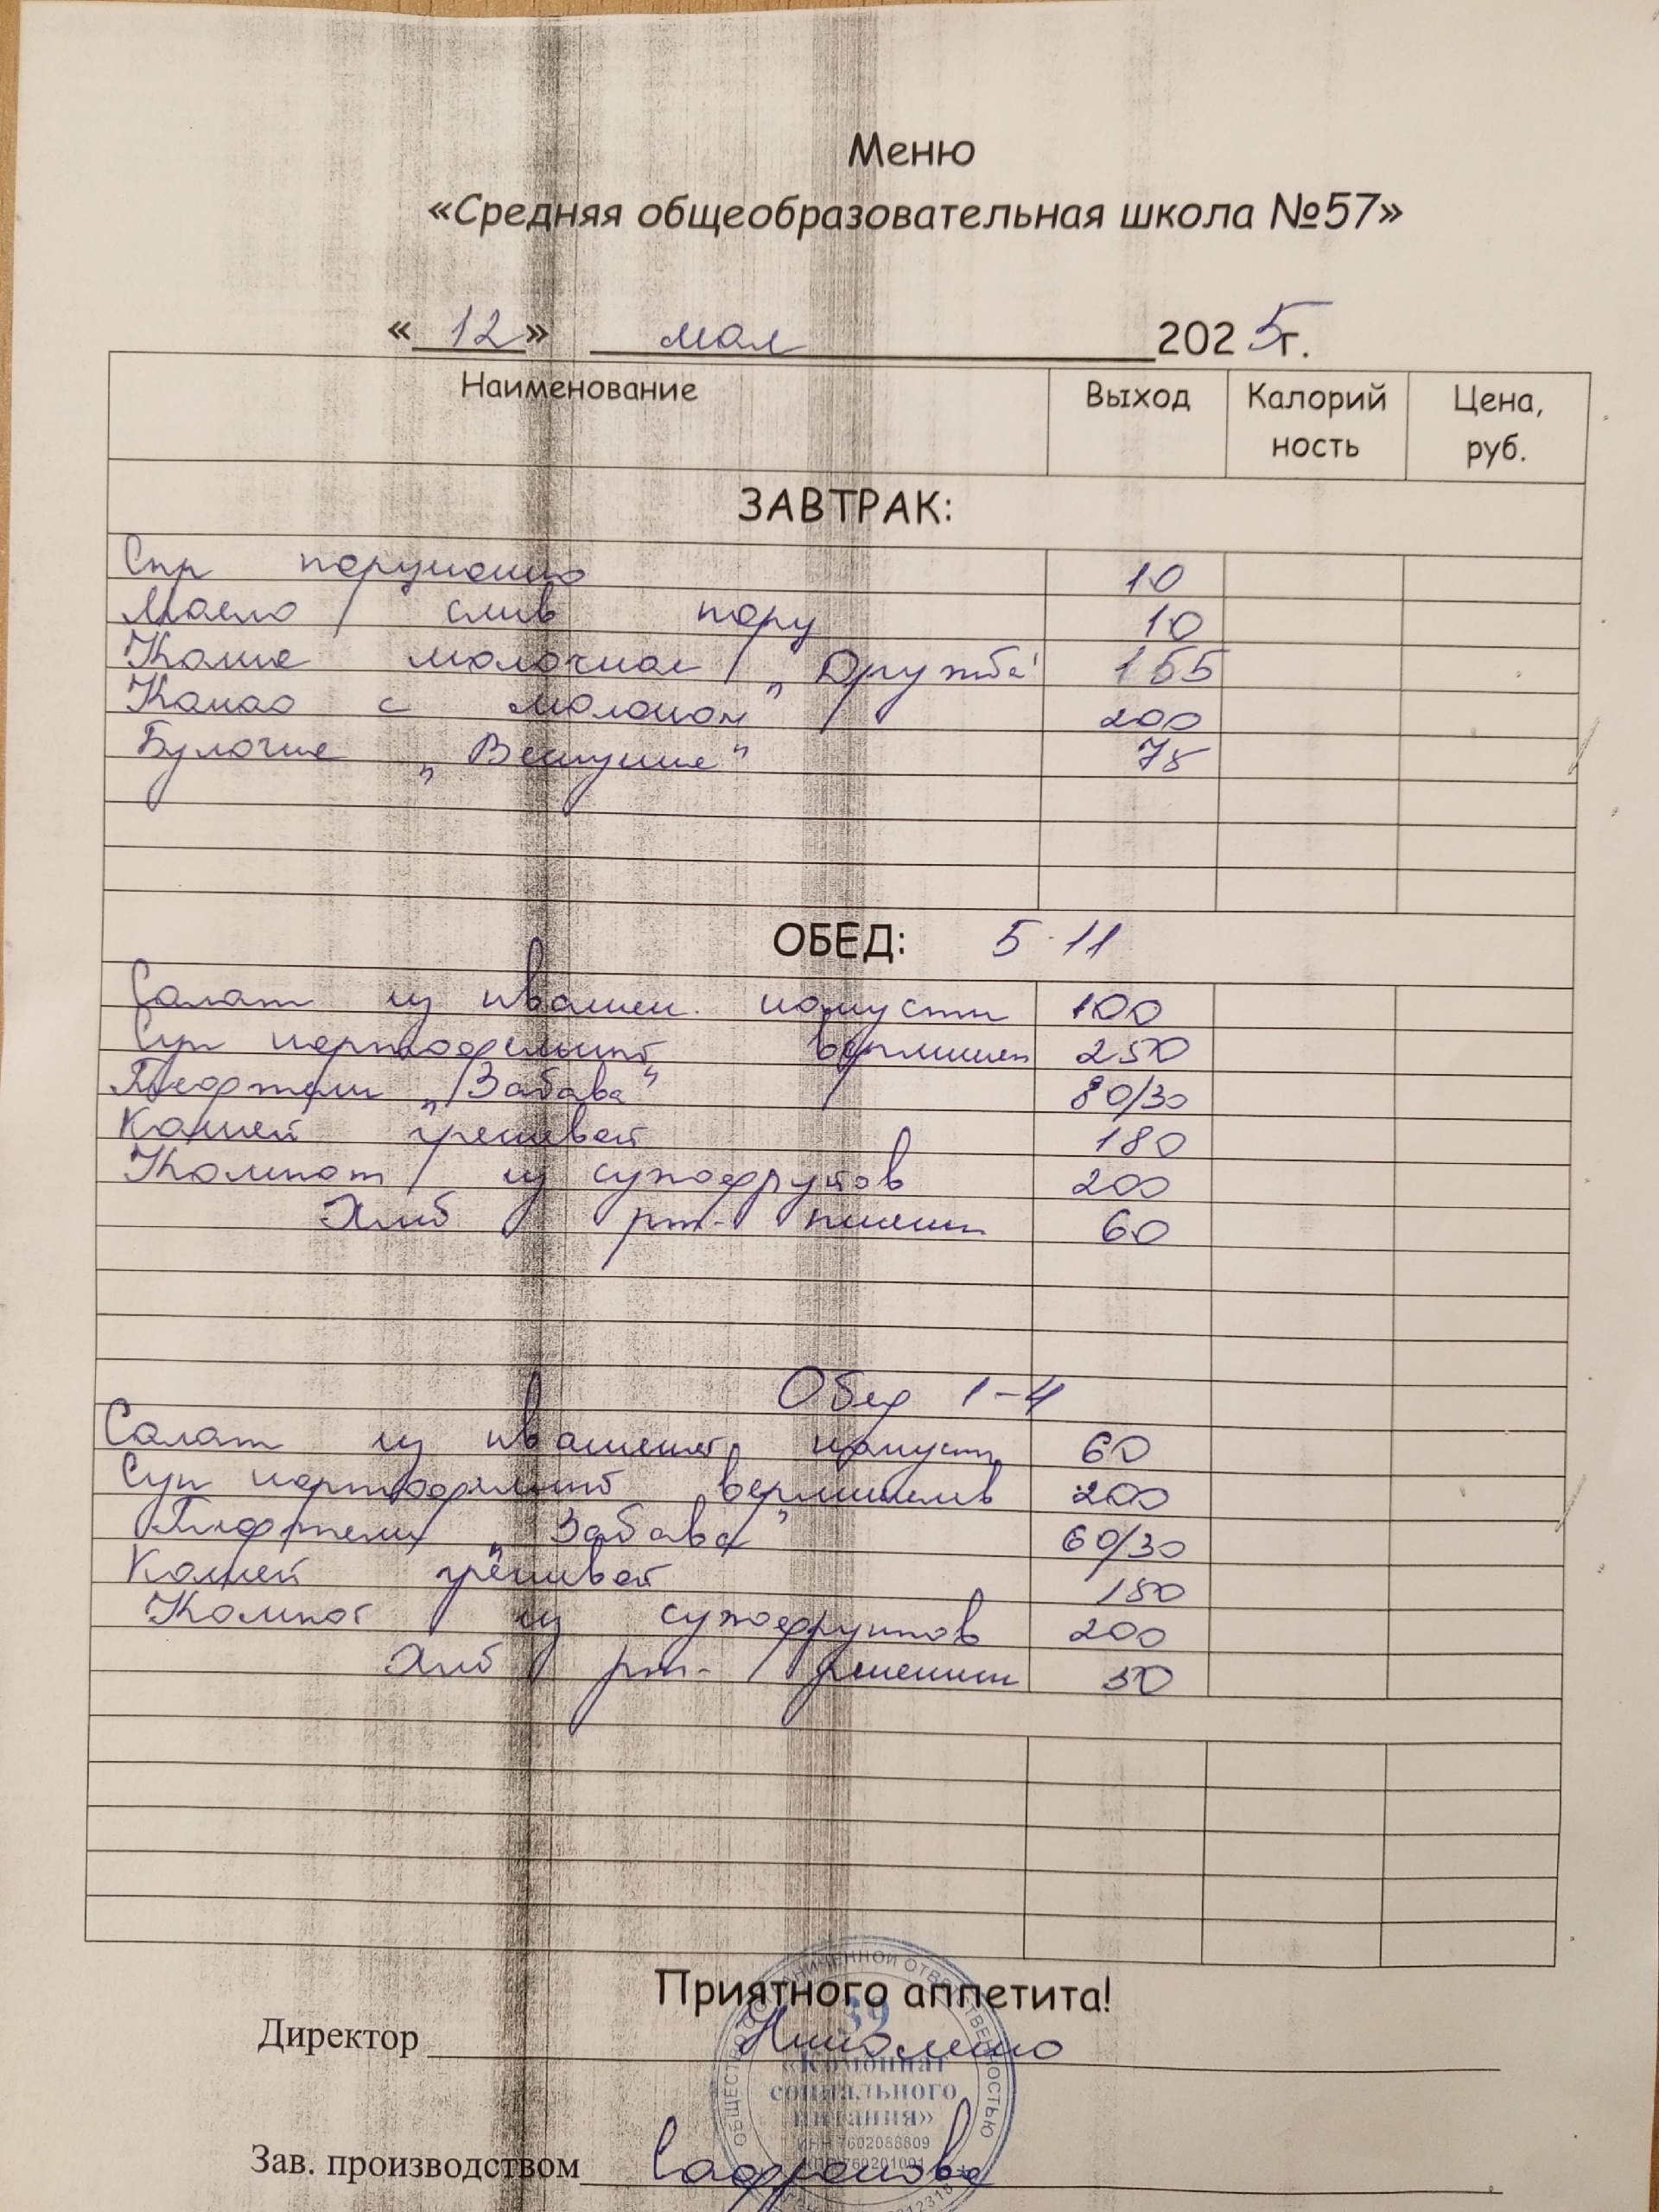 Меню
«Средняя общеобразовательная школа №57»
« 12 » мая 2025г.
Наименование Выход Калорий Цена,
ность руб.
ЗАВТРАК:
Сыр порционно 10
Масло слив порц 10
Каша молочная „Дружба" 155
Какао с молоком 200
Булочка „Веснушка" 75
ОБЕД: 5-11
Салат из квашен. капусты 100
Суп картофельный вермишел 250
Тефтели „Забава" 80/30
Кашей гречневой 180
Компот из сухофруктов 200
Хлеб рж- пшенич 60
Обед 1-4
Салат из квашеной капусты 60
Суп картофельный вермишель 200
Тефтели „Забава" 60/30
Кашей гречневой 150
Компот из сухофруктов 200
Хлеб рж- пшенич 30
Приятного аппетита!
Директор
Зав. производством Сафронова
ОБЩЕСТВО С ОГРАНИЧЕННОЙ ОТВЕТСТВЕННОСТЬЮ
39
«Комбинат
социального
питания»
ИНН 7602088809
КПП 760201001